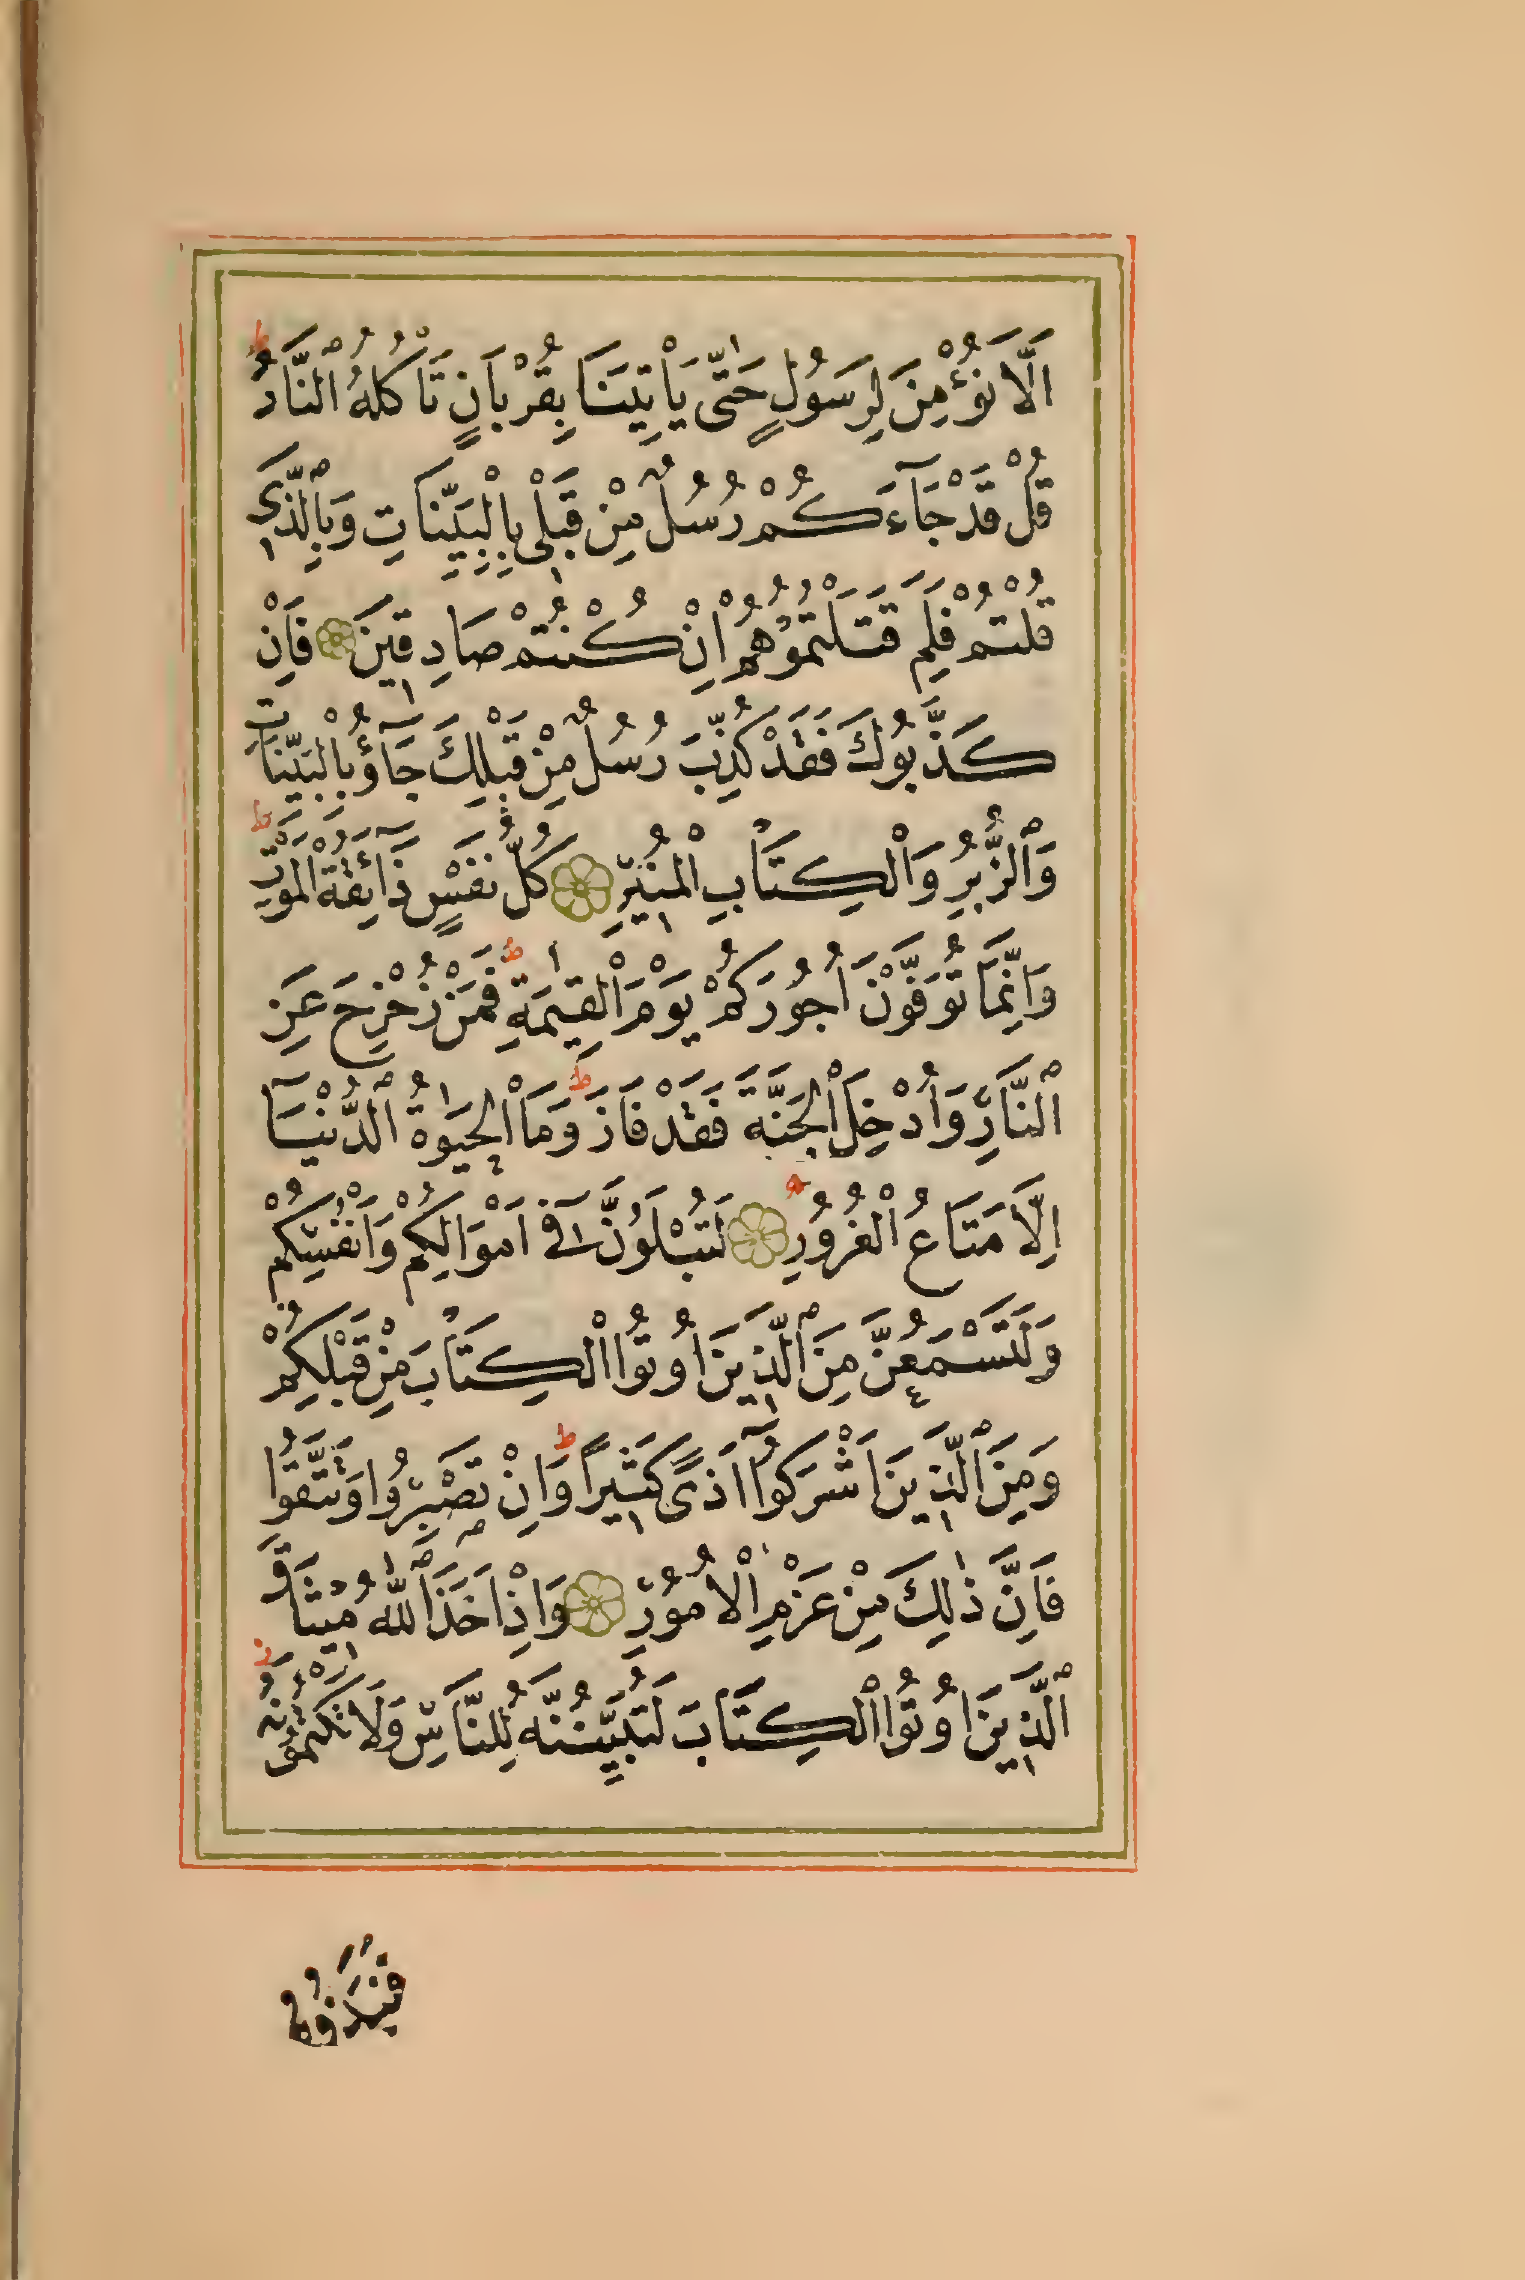 اَلَّا نُؤْمِنَ لِرَسُولٍ حَتّٰى يَأْتِيَنَا بِقُرْبَانٍ تَأْكُلُهُ النَّارُ ط
قُلْ قَدْ جَآءَكُمْ رُسُلٌ مِنْ قَبْلِى بِالْبَيِّنَاتِ وَبِالَّذِى
قُلْتُمْ فَلِمَ قَتَلْتُمُوهُمْ اِنْ كُنْتُمْ صَادِقِينَ فَاِنْ
كَذَّبُوكَ فَقَدْ كُذِّبَ رُسُلٌ مِنْ قَبْلِكَ جَآؤُ بِالْبَيِّنَاتِ
وَالزُّبُرِ وَالْكِتَابِ الْمُنِيرِ كُلُّ نَفْسٍ ذَآئِقَةُ الْمَوْتِ ط
وَاِنَّمَا تُوَفَّوْنَ اُجُورَكُمْ يَوْمَ الْقِيٰمَةِ ط فَمَنْ زُحْزِحَ عَنِ
النَّارِ وَاُدْخِلَ الْجَنَّةَ فَقَدْ فَازَ ط وَمَا الْحَيٰوةُ الدُّنْيَآ
اِلَّا مَتَاعُ الْغُرُورِ لَتُبْلَوُنَّ فِىٓ اَمْوَالِكُمْ وَاَنْفُسِكُمْ
وَلَتَسْمَعُنَّ مِنَ الَّذِينَ اُوتُوا الْكِتَابَ مِنْ قَبْلِكُمْ
وَمِنَ الَّذِينَ اَشْرَكُوٓا اَذًى كَثِيرًا ط وَاِنْ تَصْبِرُوا وَتَتَّقُوا
فَاِنَّ ذٰلِكَ مِنْ عَزْمِ الْاُمُورِ وَاِذْ اَخَذَ اللّٰهُ مِيثَاقَ
الَّذِينَ اُوتُوا الْكِتَابَ لَتُبَيِّنُنَّهُ لِلنَّاسِ وَلَا تَكْتُمُونَهُ
فَنَبَذُوهُ